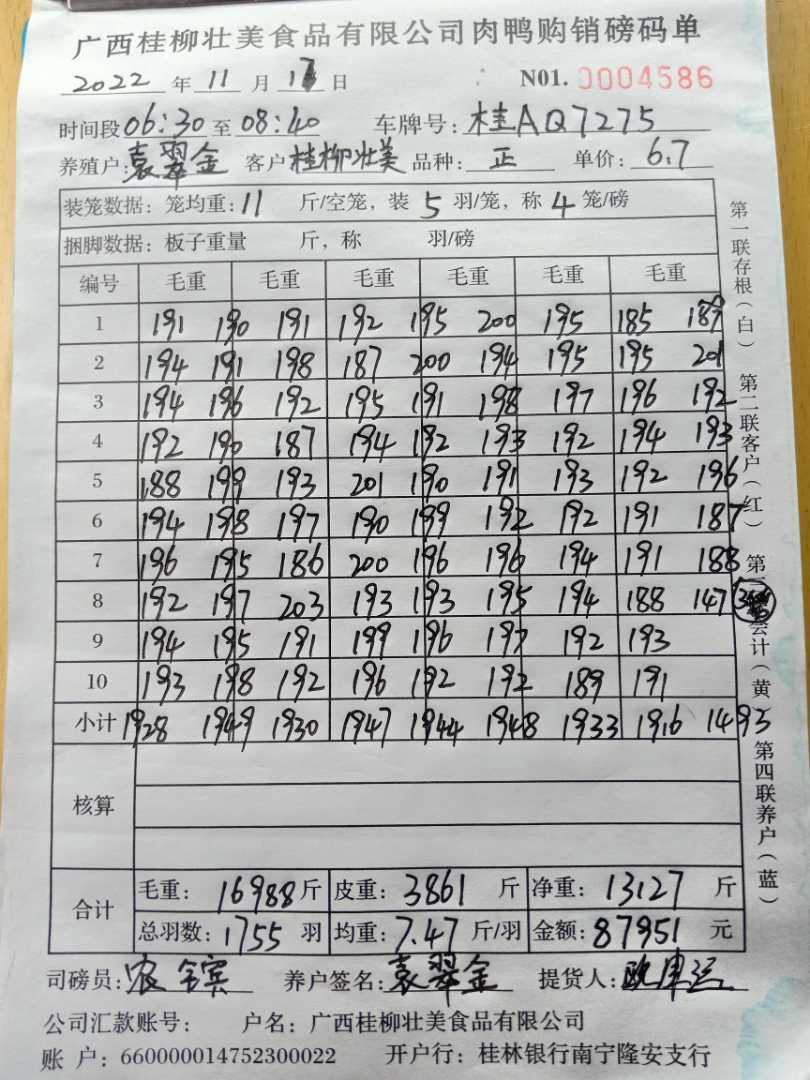 广西桂柳壮美食品有限公司肉鸭购销磅码单
2022 年 11 月 17 日 N01. 0004586
时间段 06:30 至 08:40 车牌号: 桂AQ7275
养殖户: 袁翠金 客户 桂柳壮美 品种: 正 单价: 6.7
装笼数据: 笼均重: 11 斤/空笼, 装 5 羽/笼, 称 4 笼/磅
捆脚数据: 板子重量 斤, 称 羽/磅
编号 毛重 毛重 毛重 毛重 毛重 毛重
1 191 190 191 192 195 200 195 185 189
2 194 191 198 187 200 194 195 195 201
3 194 196 192 195 191 198 197 196 192
4 192 190 187 194 192 193 192 194 193
5 188 199 193 201 190 191 193 192 196
6 194 198 197 190 199 192 192 191 187
7 196 195 186 200 196 196 194 191 188
8 192 197 203 193 193 195 194 188 147
9 194 195 191 199 196 197 192 193
10 193 198 192 196 192 192 189 191
小计 1928 1949 1930 1947 1944 1948 1933 1916 1493
核算
合计
毛重: 16988 斤 皮重: 3861 斤 净重: 13127 斤
总羽数: 1755 羽 均重: 7.47 斤/羽 金额: 87951 元
司磅员: 农 养户签名: 袁翠金 提货人: 欧
公司汇款账号: 户名: 广西桂柳壮美食品有限公司
账 户: 660000014752300022 开户行: 桂林银行南宁隆安支行
第一联存根(白) 第二联客户(红) 第三联会计(黄) 第四联养户(蓝)